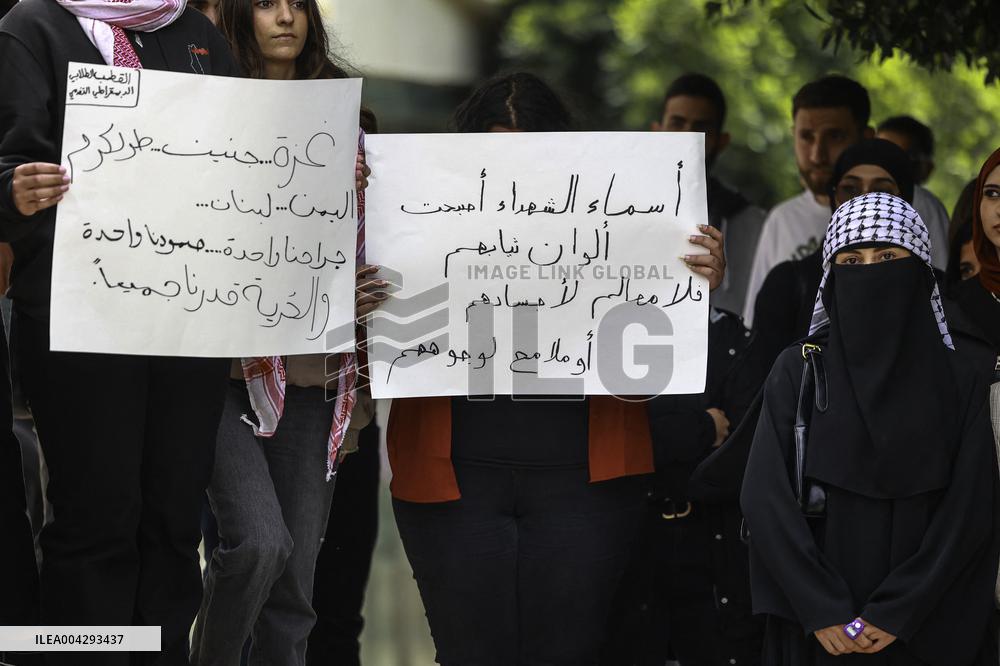 القطب الطلابي
الديمقراطي التقدمي
غزة...جنين...طولكرم
اليمن...لبنان...
جراحنا واحدة....صمودنا واحدة
والحُرية قدرنا جميعاً.
أسماء الشهداء أصبحت
ألوان ثيابهم
فلا معالم لأجسادهم
أو ملامح لوجوههم
IMAGE LINK GLOBAL
ILG
ILEA004293437